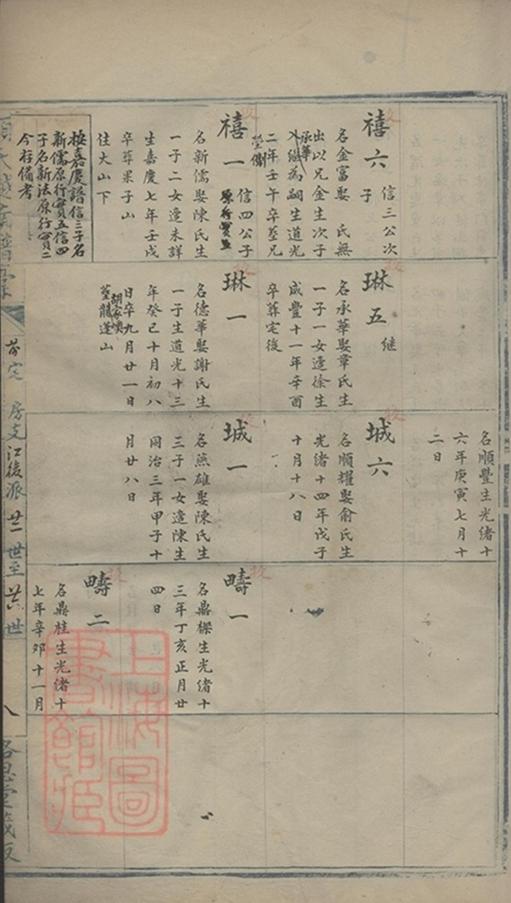 禧六
信三公次
子
名金富娶 氏無
出以兄金生次子
承華
入繼為嗣生道光
二年壬午卒葬兄
塋側
禧一
信四公子
原行寶五
名新儒娶陳氏生
一子二女逢未詳
生嘉慶七年壬戌
卒葬果子山
住大山下
按嘉慶譜信三子名
新儒原行寶五信四
子名新法原行寶二
今存備考
琳五
繼
名承華娶章氏生
一子一女逢徐生
咸豐十一年辛酉
卒葬定後
琳一
名德華娶謝氏生
一子生道光十三
年癸巳十月初八
日卒九月廿一日
葬龍蓬山
名順豐生光緒十
六年庚寅七月十
二日
城六
名順耀娶俞氏生
光緒十四年戊子
十月十八日
城一
名無雄娶陳氏生
三子一女逢陳生
同治三年甲子十
月廿八日
疇一
名鼎樑生光緒十
三年丁亥正月廿
四日
疇二
名鼎桂生光緒十
七年辛卯十一月
房支江後派 廿一世至廿五世
八
上海圖書館藏